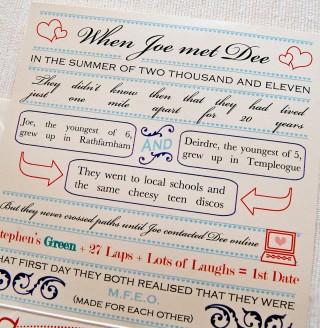 When Joe met Dee
IN THE SUMMER OF TWO THOUSAND AND ELEVEN
They didn't know then that they had lived
just one mile apart for 20 years
Joe, the youngest of 6,
grew up in Rathfarnham
AND
Deirdre, the youngest of 5,
grew up in Templeogue
They went to local schools and
the same cheesy teen discos
But they never crossed paths until Joe contacted Dee online
tephen's Green + 27 Laps + Lots of Laughs = 1st Date
HAT FIRST DAY THEY BOTH REALISED THAT THEY WERE
M.F.E.O.
(MADE FOR EACH OTHER)